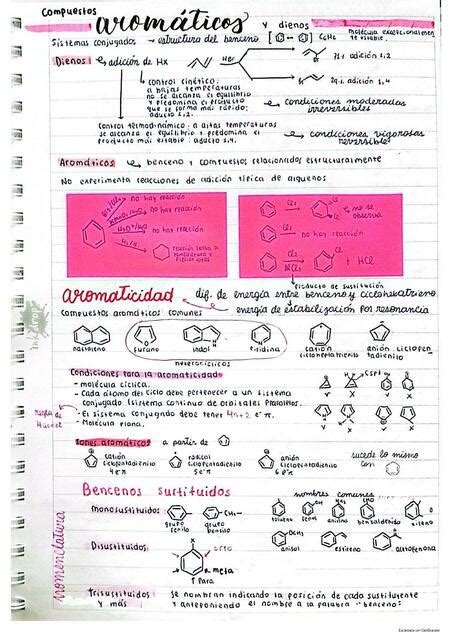 Compuestos
aromáticos y dienos
Sistemas conjugados → estructura del benceno C6H6 molécula excepcionalmente estable.
Dienos → adición de HX
HBr
71% adición 1,2
29% adición 1,4
control cinético:
a bajas temperaturas
no se alcanza el equilibrio
y predomina el producto
que se forma más rápido:
aducto 1,2.
condiciones moderadas
irreversibles
control termodinámico: a altas temperaturas
se alcanza el equilibrio y predomina el
producto más estable: aducto 1,4.
condiciones vigorosas
reversibles
Aromáticos → benceno y compuestos relacionados estructuralmente
No experimenta reacciones de adición típica de alquenos
no hay reacción
no hay reacción
H3O+/H2O no hay reacción
H2/Ni
reacción lenta a
Cl2
no se
observa
Cl2 no hay reacción
Cl2
Cl
+ HCl
producto de sustitución
aromaticidad dif. de energía entre benceno y ciclohexatrieno
energía de estabilización por resonancia
Compuestos aromáticos comunes
naftaleno furano indol piridina catión
cicloheptatrienilo anión ciclopen-
tadienilo
heterocíclicos
Condiciones para la aromaticidad
- molécula cíclica.
- Cada átomo del ciclo debe pertenecer a un sistema
conjugado (sistema continuo de orbitales p paralelos).
regla de
Hückel
- El sistema conjugado debe tener 4n+2 e⁻π.
- Molécula plana.
Iones aromáticos a partir de
catión
ciclopentadienilo
4 e⁻π
radical
ciclopentadienilo
5 e⁻π
anión
ciclopentadienilo
6 e⁻π
sucede lo mismo
con
Bencenos sustituidos
nomenclatura
Monosustituidos
grupo
fenilo
CH2-
grupo
bencilo
nombres comunes
tolueno fenol anilina benzaldehído xileno
anisol estireno acetofenona
Disustituidos
x
orto
meta
Para
Trisustituidos
y más
se nombran indicando la posición de cada sustituyente
y anteponiendo el nombre a la palabra "benceno".